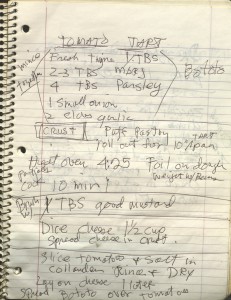 TOMATO TART
mince
together
Fresh thyme 1 TBS
2-3 TBS
4 TBS Parsley
1 small onion
2 cloves garlic
CRUST Pate pastry
roll out for 10" pan
Heat oven 425 Foil on dough
10 min
1 TBS good mustard
Dice cheese 1 1/2 cup
spread cheese in crust.
Slice tomatoes & salt in
collander Rinse & DRY
Lay on cheese 1 layer
spread over tomatoes